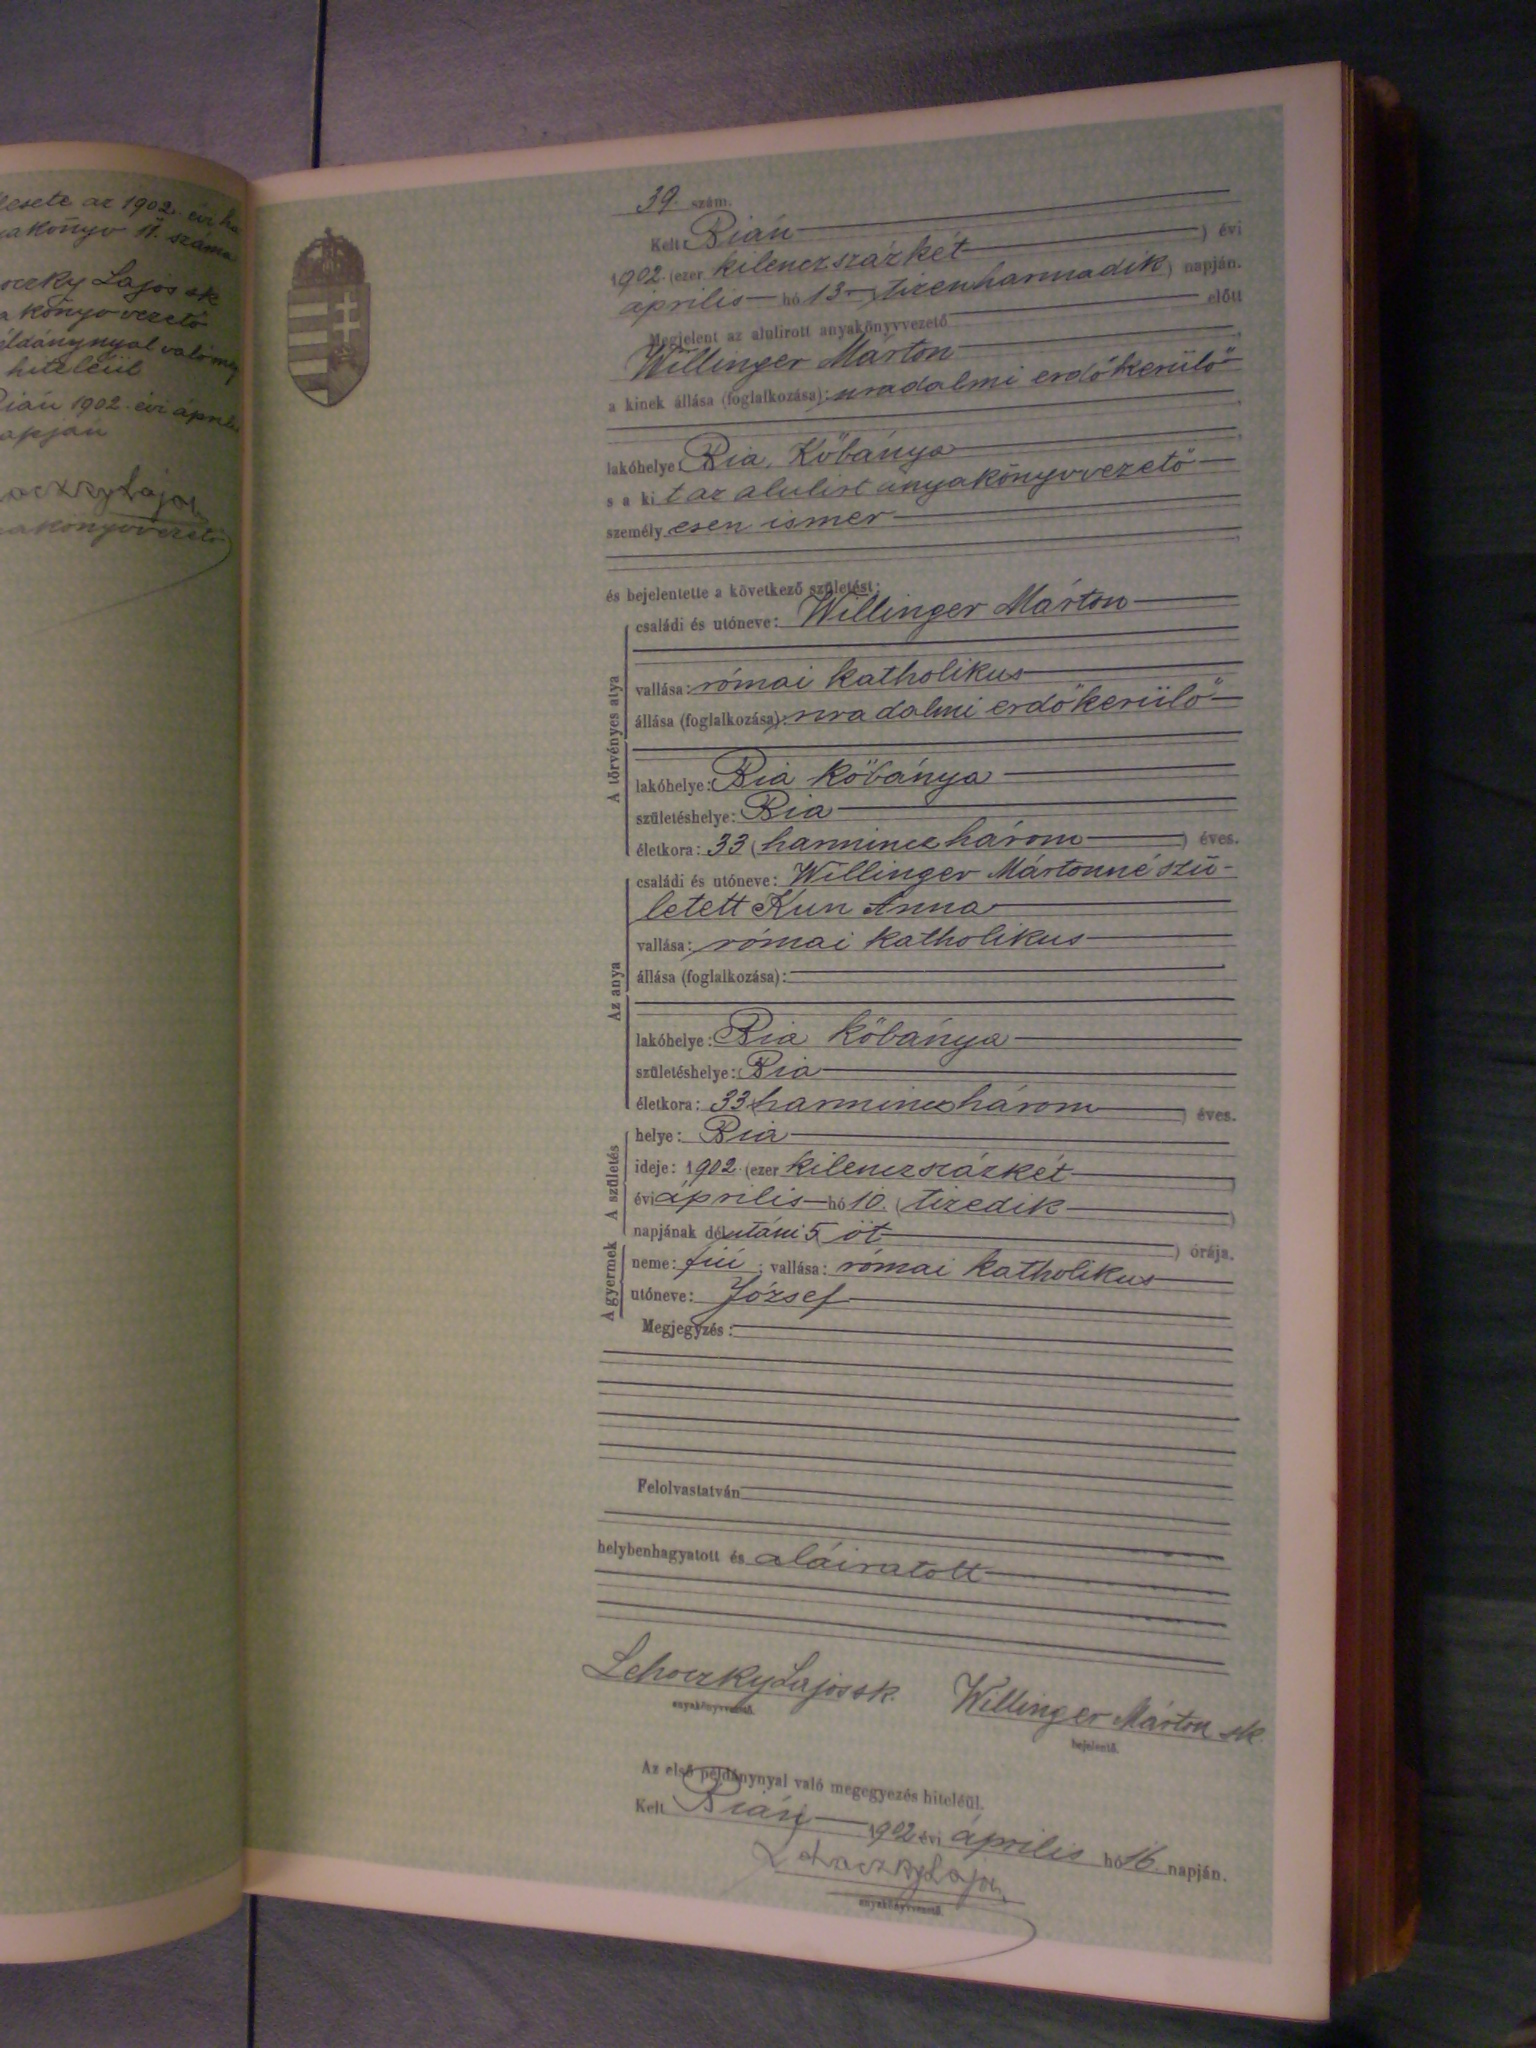 esete az 1902. évi ha
akönyv 11. száma
oczky Lajos sk
a könyvvezető
éldánynyal való meg
hiteléül
Bián 1902. évi április
apján
aczky Lajos
akönyvvezető
39. szám.
Kelt: Bián ) évi
1902. (ezer kilenczszázkét
április hó 13 tizenharmadik) napján.
Megjelent az alulirott anyakönyvvezető előtt
Willinger Márton
a kinek állása (foglalkozása): uradalmi erdőkerülő
lakóhelye: Bia, Kőbánya
s a ki t az alulirt anyakönyvvezető
személy esen ismer
és bejelentette a következő születést:
A törvényes atya
családi és utóneve: Willinger Márton
vallása: római katholikus
állása (foglalkozása): uradalmi erdőkerülő
lakóhelye: Bia Kőbánya
születéshelye: Bia
életkora: 33 (harmincz három ) éves.
Az anya
családi és utóneve: Willinger Mártonné szü-
letett Kun Anna
vallása: római katholikus
állása (foglalkozása):
lakóhelye: Bia kőbánya
születéshelye: Bia
életkora: 33 harmincz három ) éves.
A születés
helye: Bia
ideje: 1902. (ezer kilenczszázkét )
évi április hó 10. (tizedik )
napjának délutáni 5 öt ) órája.
A gyermek
neme: fiú ; vallása: római katholikus
utóneve: József
Megjegyzés:
Felolvastatván
helybenhagyatott és aláiratott
Lehoczky Lajos sk. Willinger Márton sk.
anyakönyvvezető. bejelentő.
Az első példánynyal való megegyezés hiteléül.
Kelt Bián 1902 évi április hó 16. napján.
Lehoczky Lajos
anyakönyvvezető.